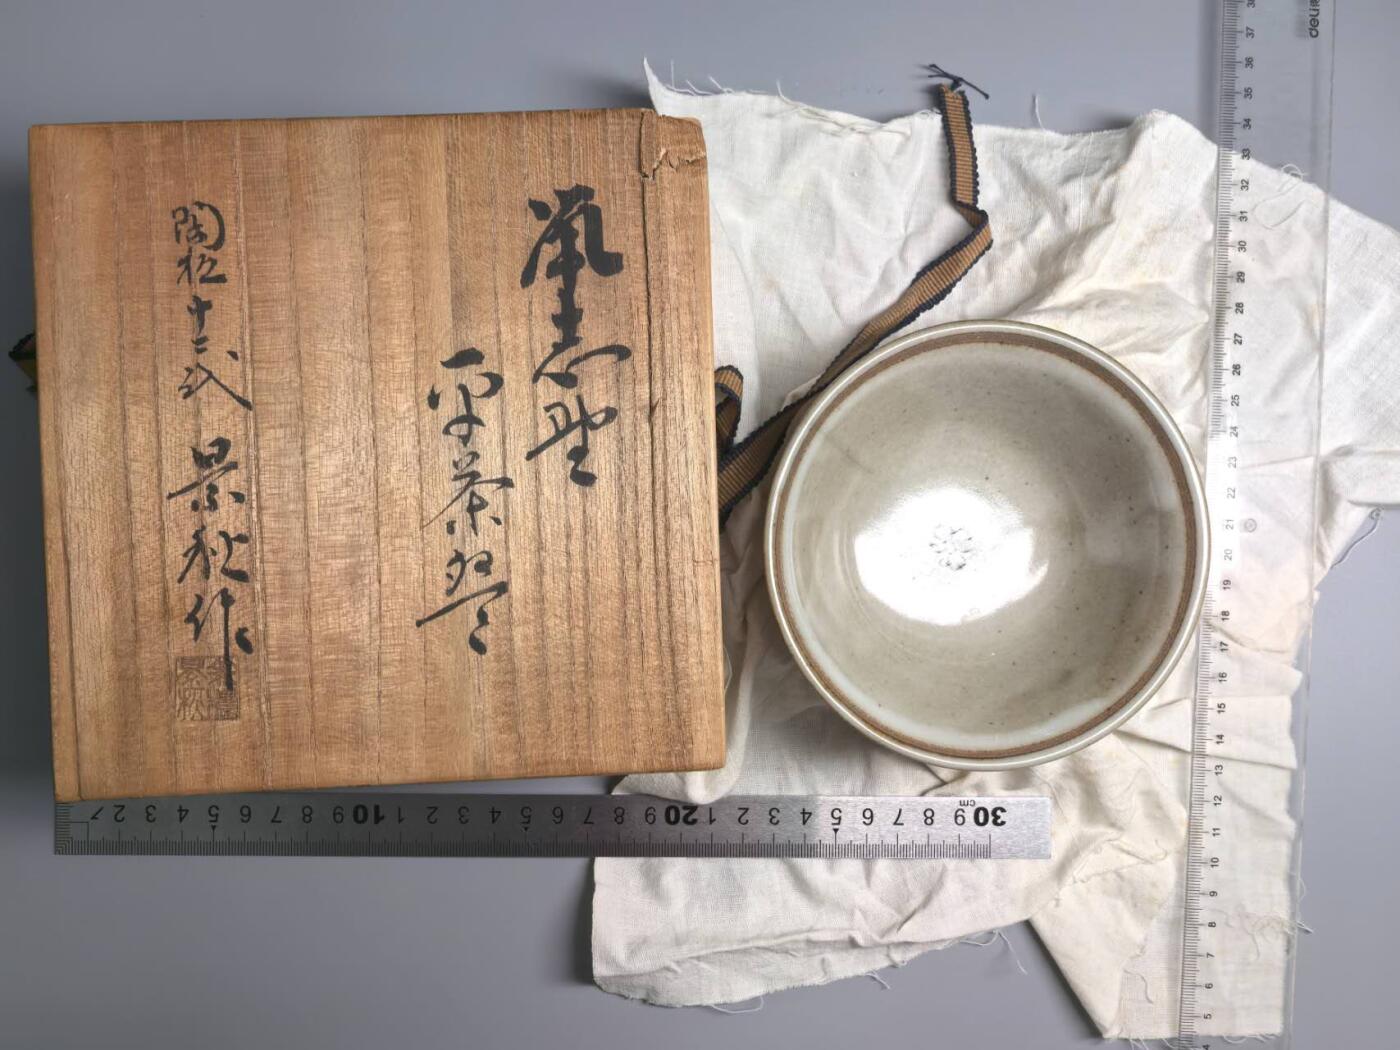 鼠志野
平茶盌
陶祖十二代 景秋作
1 2 3 4 5 6 7 8 9 10 1 2 3 4 5 6 7 8 9 20 1 2 3 4 5 6 7 8 9 30
cm
deli
38 37 36 35 34 33 32 31 30 29 28 27 26 25 24 23 22 21 20 19 18 17 16 15 14 13 12 11 10 9 8 7 6 5 4